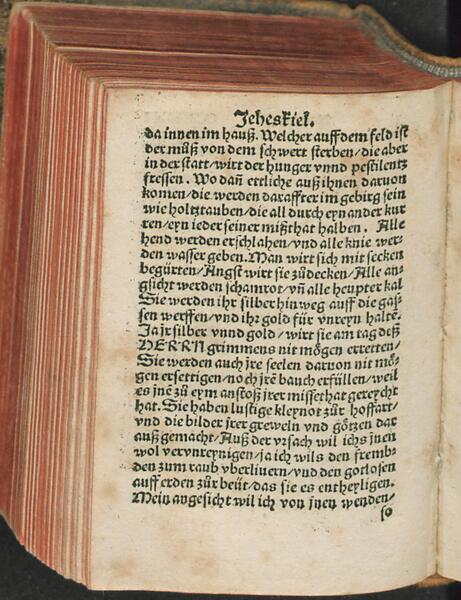 Jeheskiel.
da innen im hauß. Welcher auff dem feld ist
der můß von dem schwert sterben/die aber
in der statt/wirt der hunger vnnd pestilentz
fressen. Wo dañ ettliche auß ihnen daruon
komen/die werden daraffter im gebirg sein
wie holtztauben/die all durch eynander kur
ren/eyn ieder seiner mißthat halben. Alle
hend werden erschlahen/vnd alle knie wer-
den wasser geben. Man wirt sich mit secken
begürten/Angst wirt sie zůdecken/Alle an-
gsicht werden schamrot/vñ alle heupter kal
Sie werden ihr silber hinweg auff die gas-
sen werffen/vnd ihr gold für vnreyn haltē.
Ja jr silber vnnd gold/wirt sie am tag deß
HERRN grimmens nit mögen erretten/
Sie werden auch jre seelen daruon nit mö-
gen ersettigen/noch jrē bauch erfüllen/weil
es jnē zů eym anstoß jrer missethat gereycht
hat. Sie haben lustige kleynot zůr hoffart/
vnd die bilder jrer greweln vnd götzen dar
auß gemacht/Auß der vrsach wil ichs jnen
wol vervnreynigen/ja ich wils den fremb-
den zum raub vberliuern/vnd den gotlosen
auff erden zůr beüt/das sie es entheyligen.
Mein angesicht wil ich von jnen wenden/
so